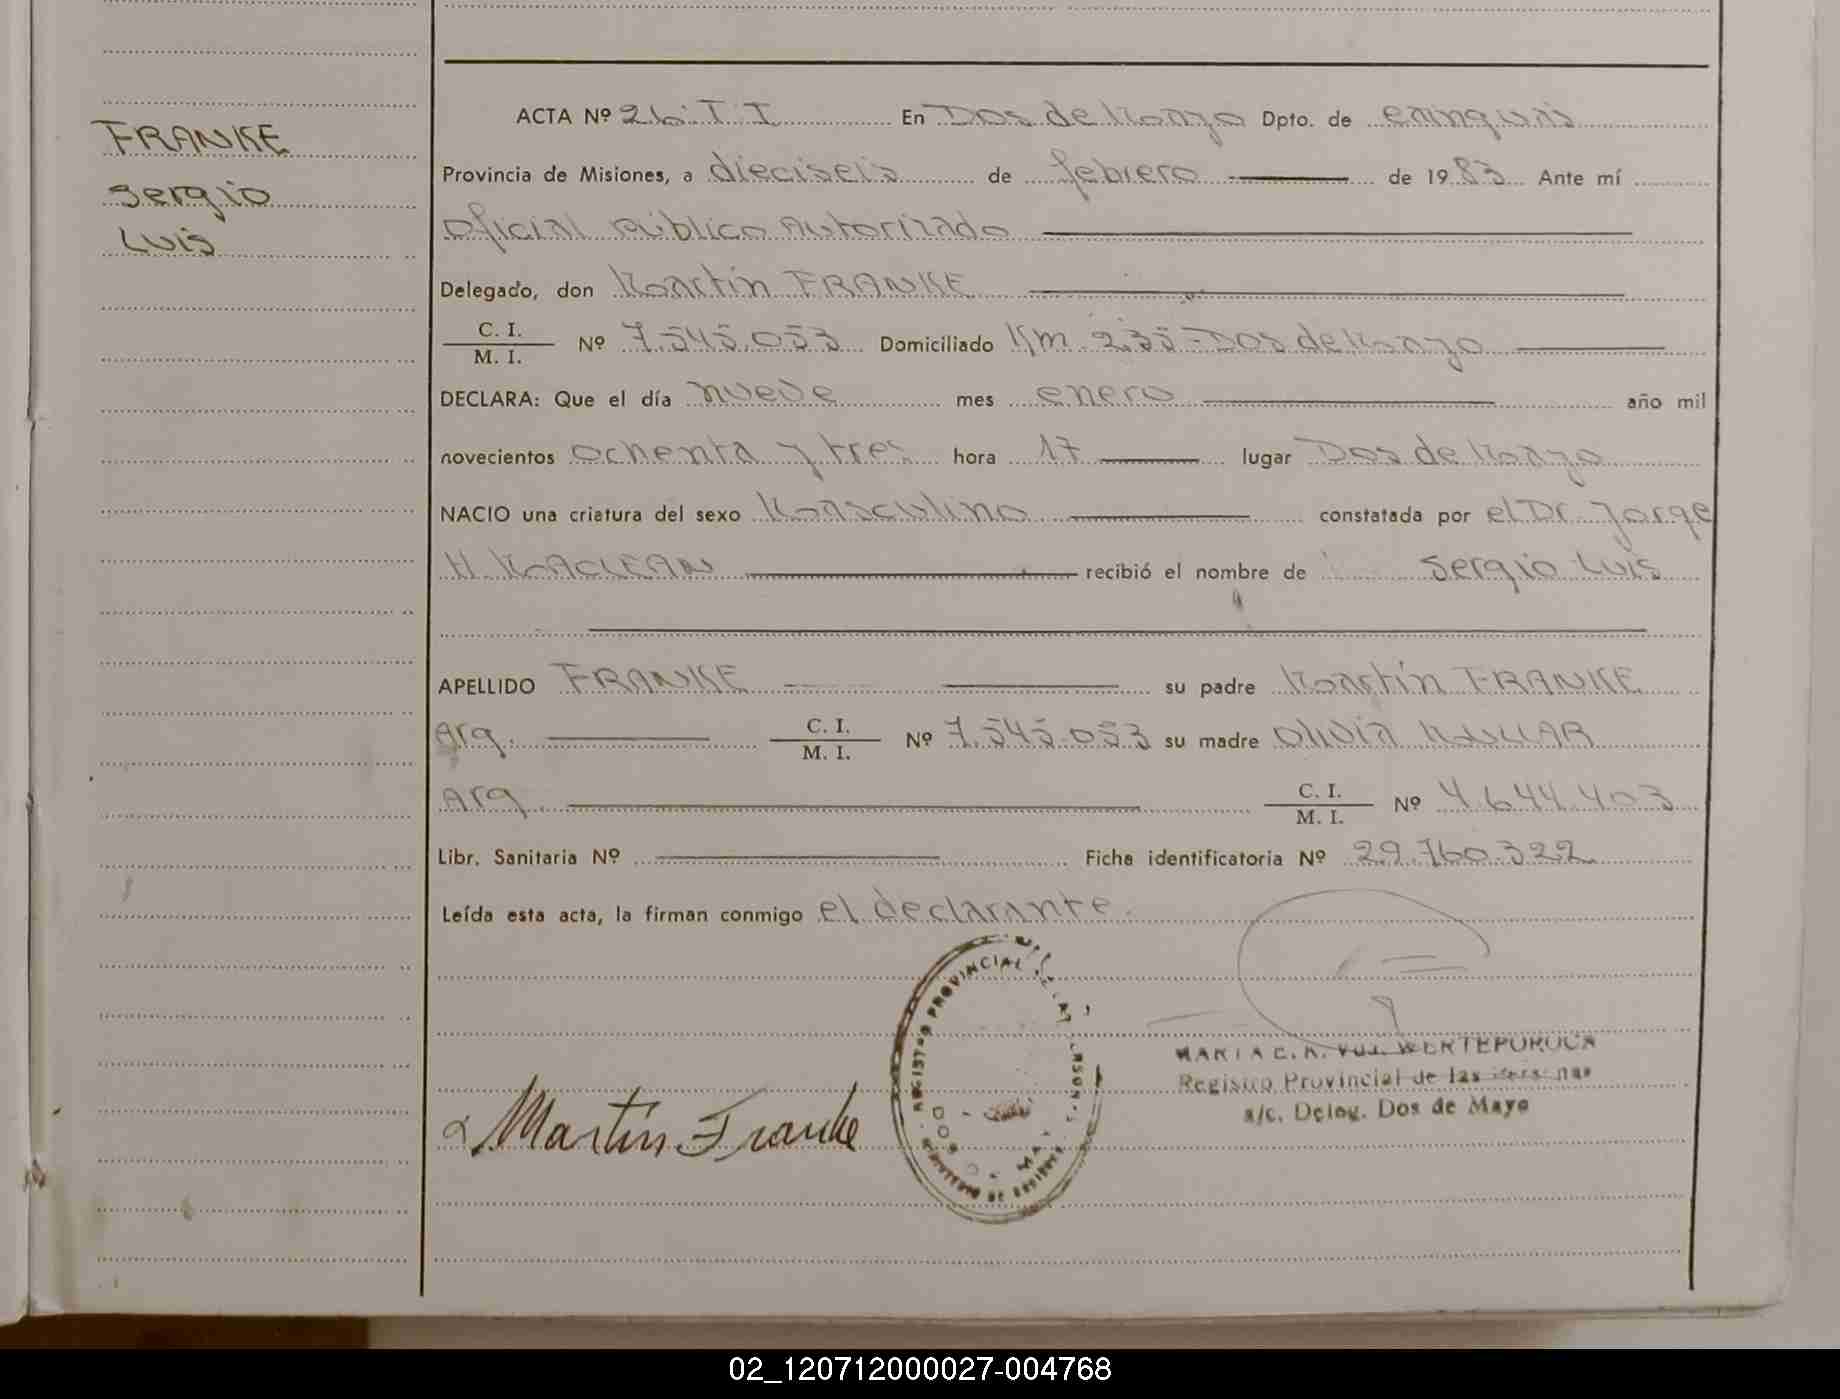 FRANKE
Sergio
Luis
ACTA Nº 26. T I En Dos de Mayo Dpto. de cainguas
Provincia de Misiones, a dieciseis de febrero de 1983 Ante mí
Oficial público Autorizado
Delegado, don Martín FRANKE
C. I.
M. I. Nº 7.545.053 Domiciliado Km. 235 - Dos de Mayo
DECLARA: Que el día nueve mes enero año mil
novecientos ochenta y tres hora 17 lugar Dos de Mayo
NACIO una criatura del sexo Masculino constatada por el Dr. Jorge
H. MACLEAN recibió el nombre de Sergio Luis
APELLIDO FRANKE su padre Martín FRANKE
Arg. C. I.
M. I. Nº 7.545.053 su madre Olivia
Arg. C. I.
M. I. Nº 4.644.403
Libr. Sanitaria Nº Ficha identificatoria Nº 29.760.322
Leída esta acta, la firman conmigo el declarante.
Martín Franke
PROVINCIAL
MARTA
Registro Provincial de las Personas
a/c. Deleg. Dos de Mayo
02_120712000027-004768